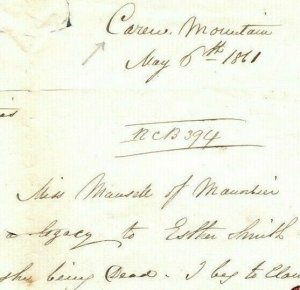 Carew Mountain
May 6th 1861
as
RCB394
Miss Mansell of Manorbier
a Legacy to Esther Smith
she being Dead. I beg to Claim